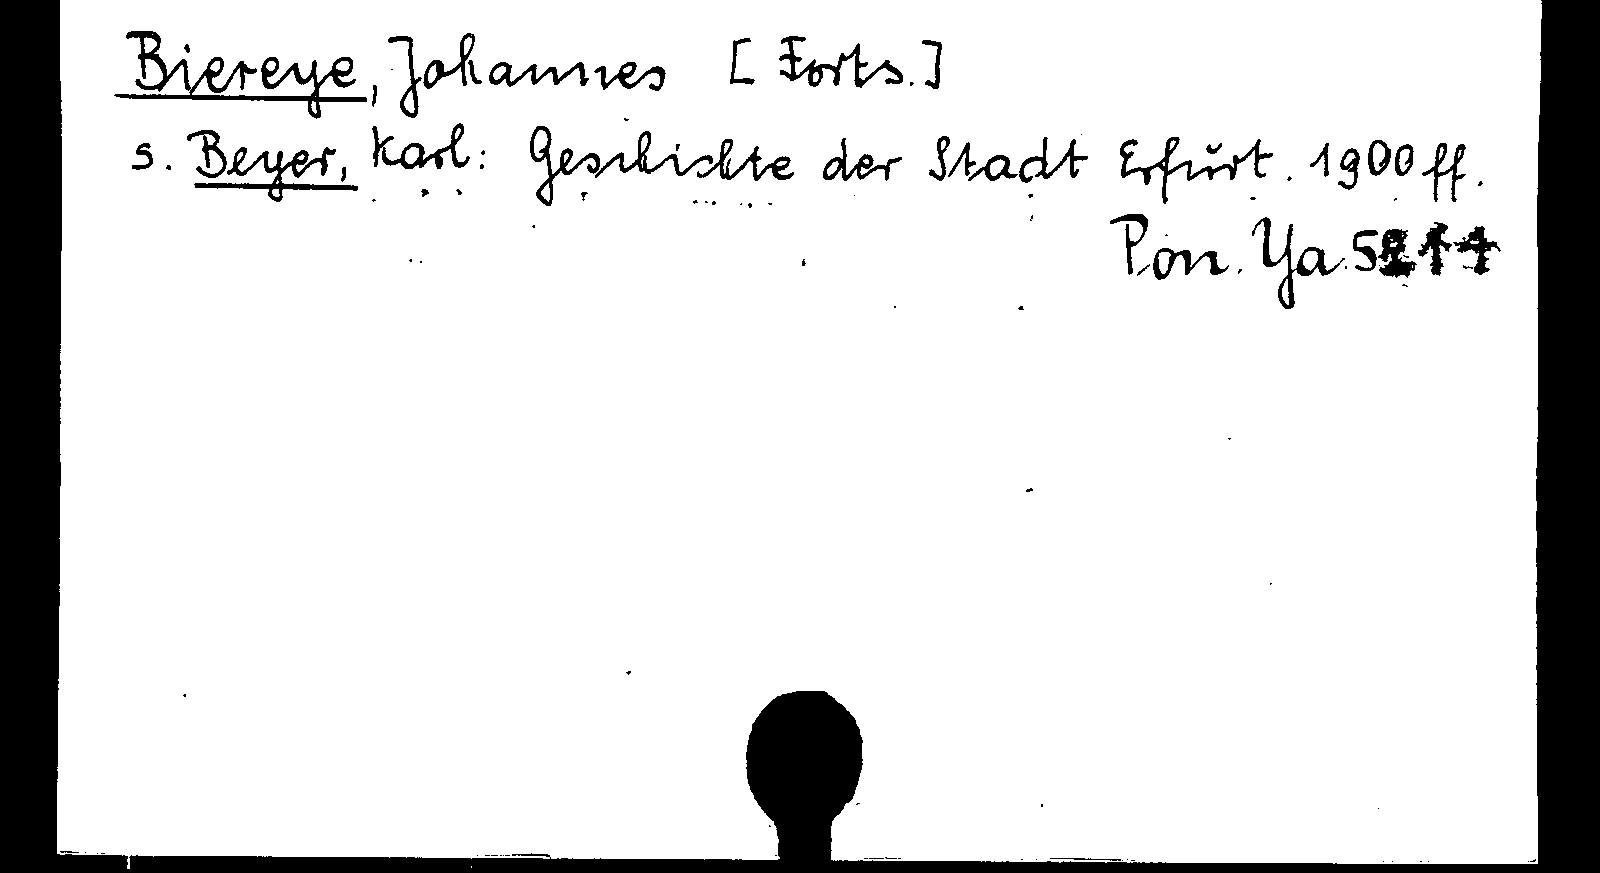 Biereye, Johannes [Forts.]
s. Beyer, Karl: Geschichte der Stadt Erfurt. 1900 ff.
Pon. Ya